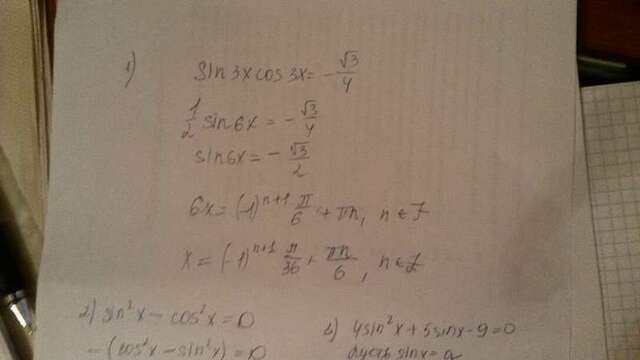 1) sin3xcos3x = -√3/4
1/2 sin6x = -√3/4
sin6x = -√3/2
6x = (-1)^(n+1) π/6 + πn, n ∈ Z
x = (-1)^(n+1) π/36 + πn/6, n ∈ Z
2) sin²x - cos²x = 0
-(cos²x - sin²x) = 0
3) 4sin²x + 5sinx - 9 = 0
Пусть sinx = a